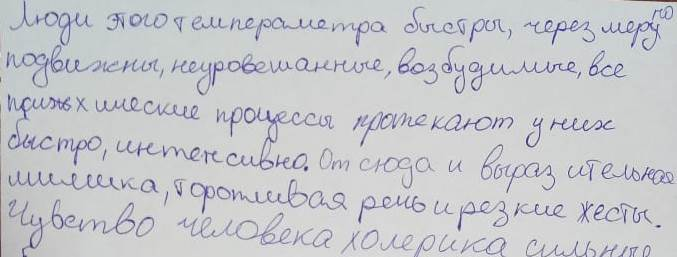 Люди этого темпераметра быстры, через мерено
подвижны, неуровешанные, возбудимые, все
психические процессы протекают у них
быстро, интенсивно. От сюда и выразительная
мимика, торопливая речь и резкие жесты.
Чувство человека холерика сильные